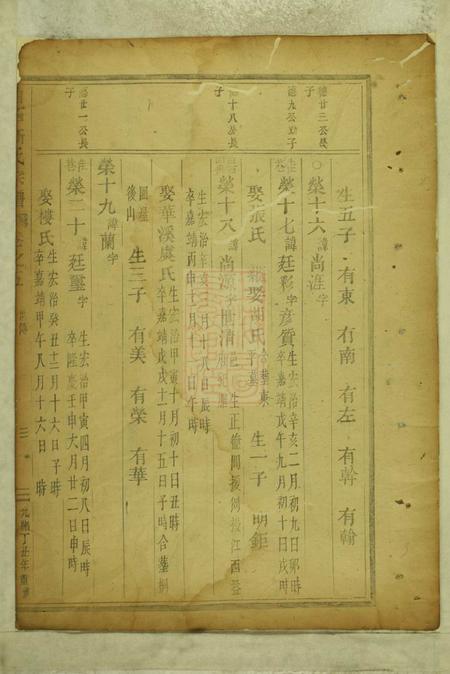 德廿三公長子
生五子 有東 有南 有左 有幹 有翰
德九公幼子
○榮十六諱尚涯字
榮十七諱廷彩字彥質生宏治辛亥二月初九日卯時
卒嘉靖戊午年九月初十日戌時
娶張氏 娶胡氏合墓東 生一子 明鉅
十八公長子
榮十八諱尚 字世清 生正德間援例授江西
生宏治辛亥 月十八日辰時
卒嘉靖丙申十月十八日午時
娶華溪虞氏生宏治甲寅十月初十日丑時
卒嘉靖戊戌十一月十五日子時合墓桐
後山 生三子 有美 有榮 有華
榮十九諱蘭字
廿一公長子
榮二十諱廷璽字 生宏治甲寅四月初八日辰時
卒隆慶壬申六月廿二日申時
娶樓氏生宏治癸丑十二月十六日子時
卒嘉靖甲午八月十六日 時
氏宗譜
三
丁丑年重修